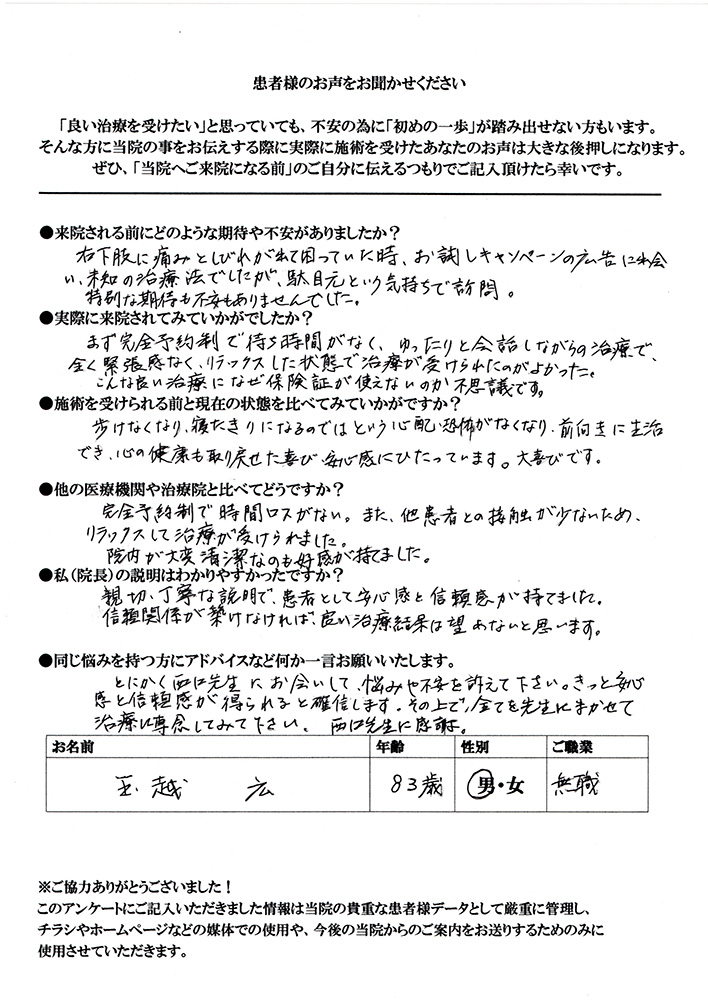 患者様のお声をお聞かせください
「良い治療を受けたい」と思っていても、不安の為に「初めの一歩」が踏み出せない方もいます。
そんな方に当院の事をお伝えする際に実際に施術を受けたあなたのお声は大きな後押しになります。
ぜひ、「当院へご来院になる前」のご自分に伝えるつもりでご記入頂けたら幸いです。
●来院される前にどのような期待や不安がありましたか？
右下肢に痛みとしびれがでて困っていた時、お試しキャンペーンの広告に出会
い、未知の治療法でしたが、駄目元という気持ちで訪問。
特別な期待も不安もありませんでした。
●実際に来院されてみていかがでしたか？
まず完全予約制で待ち時間がなく、ゆったりと会話しながらの治療で、
全く緊張感なく、リラックスした状態で治療が受けられたのがよかった。
こんな良い治療になぜ保険証が使えないのか不思議です。
●施術を受けられる前と現在の状態を比べてみていかがですか？
歩けなくなり、寝たきりになるのではという心配、恐怖がなくなり、前向きに生活
でき、心の健康も取り戻せた喜び、安心感にひたっています。大喜びです。
●他の医療機関や治療院と比べてどうですか？
完全予約制で時間ロスがない。また、他患者との接触が少ないため、
リラックスして治療が受けられました。
院内が大変清潔なのも好感が持てました。
●私（院長）の説明はわかりやすかったですか？
親切、丁寧な説明で、患者として安心感と信頼感が持てました。
信頼関係が築けなければ、良い治療結果は望めないと思います。
●同じ悩みを持つ方にアドバイスなど何か一言お願いいたします。
とにかく西口先生にお会いして、悩みや不安を訴えて下さい。きっと安心
感と信頼感が得られると確信します。その上で、全てを先生にまかせて
治療に専念してみて下さい。 西口先生に感謝。
お名前 年齢 性別 ご職業
玉越 広 83歳 男・女 無職
※ご協力ありがとうございました！
このアンケートにご記入いただきました情報は当院の貴重な患者様データとして厳重に管理し、
チラシやホームページなどの媒体での使用や、今後の当院からのご案内をお送りするためのみに
使用させていただきます。